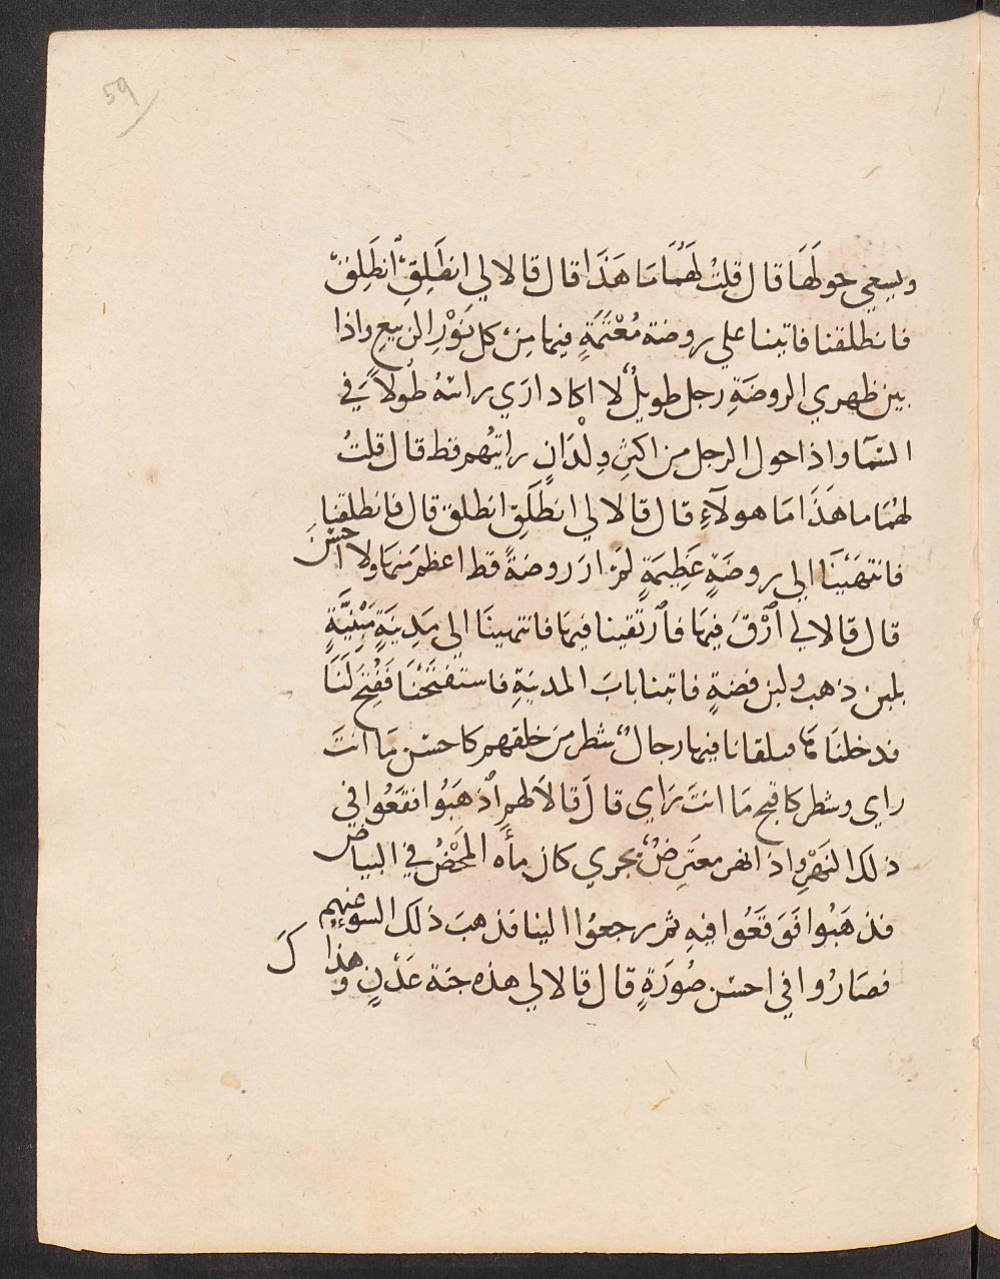 59
ويسعي حولَهَا قال قلتُ لهُمَا مَا هَذَا قال قالا لي انطَلِقِ انطَلِق
فانطلقنا فاتينا علي روضة مُعْتَمَةٍ فيها مِنْ كل نَوْرِ الربيعِ واذا
بين ظهري الروضَةِ رجل طويلٌ لا اكاد ارَي راسَهُ طُولاً في
السّمآ واذا حول الرجل من اكثرِ وِلْدَانٍ رايتُهم قط قال قلتُ
لهُمَا ما هَذَا مَا هولآءِ قال قالا لي انطَلِق انطلق قال فانطلقنا
فانتهَيْنَا الي روضَةٍ عَظِيمَةٍ لمْ ارَ روضةً قط اعظم مِنهَا ولا احسَن
قال قالا لي ارْقَ فيهَا فارتَقينا فيهَا فانتهينَا الي مَدِينَةٍ مَبْنِيَّةٍ
بلبن ذهب ولبن فضةٍ فاتينا بابَ المدينةِ فاستفتَحْنَا فَفُتِحَ لَنَا
فدخلنَاهَا فتلقانا فيها رجالٌ شطر من خلقهم كاحسَن مَا انتَ
راي وشطر كاقبح مَا انتَ رَاي قال قالاَ لهم اذهَبُوا فقَعُوا في
ذلك النهَرِ واذا نهر معتَرِضٌ يجري كان مأه المَحْضُ في البياض
فذهَبُوا فَوَقَعُوا فيهِ ثم رجعوُا الينا فذهبَ ذلك السوءُ عنهم
فصَارُوا في احسَن صُورَةٍ قال قالا لي هذه جنة عَدْنٍ وَهذا كَ